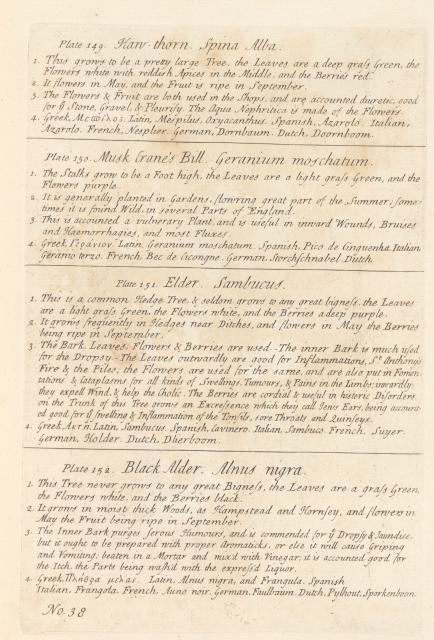 Plate 149. Haw-thorn. Spina Alba.
1. This grows to be a pretty large Tree, the Leaves are a deep graſs Green, the
Flowers white with reddish Apices in the Middle, and the Berries red.
2. It flowers in May, and the Fruit is ripe in September.
3. The Flowers & Fruit are both used in the Shops, and are accounted diuretic, good
for ẙ Stone, Gravel, & Pleurisy. The Aqua Nephritica is made of the Flowers.
4. Greek, Latin, Mespilus, Oxyacanthus. Spanish, Azarolo. Italian,
Azarolo. French, Nesplier. German, Dornbaum. Dutch, Doornboom.
Plate 150. Musk Crane's Bill. Geranium moschatum.
1. The Stalks grow to be a Foot high, the Leaves are a light graſs Green, and the
Flowers purple.
2. It is generally planted in Gardens, flowring great part of the Summer, some-
times it is found Wild, in several Parts of England.
3. This is accounted a vulnerary Plant, and is useful in inward Wounds, Bruises
and Haemorrhagies, and most Fluxes.
4. Greek, Γεράνιον. Latin, Geranium moschatum. Spanish, Pico de Cinguenha. Italian,
Geranio terzo. French, Bec de Cicongne. German, Storchschnabel. Dutch.
Plate 151. Elder. Sambucus.
1. This is a common Hedge Tree, & seldom grows to any great bigneſs, the Leaves
are a light graſs Green, the Flowers white, and the Berries a deep purple.
2. It grows frequently in Hedges near Ditches, and flowers in May the Berries
being ripe in September.
3. The Bark, Leaves, Flowers & Berries are used. The inner Bark is much used
for the Dropsy. The Leaves outwardly are good for Inflammations, Sᵗ Anthonys
Fire & the Piles, the Flowers are used for the same, and are also put in Fomen-
tations & Cataplasms for all kinds of Swellings, Tumours, & Pains in the Limbs; inwardly
they expell Wind, & help the Cholic. The Berries are cordial & useful in hysteric Disorders.
on the Trunk of this Tree grows an Excresence which they call Jews Ears, being account-
ed good for ẙ swelling & Inflammation of the Tonsils, sore Throats and Quinseys.
4. Greek, Ἀκτῆ. Latin, Sambucus. Spanish, Cavinero. Italian, Sambuco. French, Suyer.
German, Holder. Dutch, Dherboom.
Plate 152. Black Alder. Alnus nigra.
1. This Tree never grows to any great Bigneſs, the Leaves are a graſs Green,
the Flowers white, and the Berries black.
2. It grows in moist thick Woods, as Hampstead and Hornsey, and flowers in
May the Fruit being ripe in September.
3. The Inner Bark purges serous Humours, and is commended for ẙ Dropsy & Jaundise,
but it ought to be prepared with proper Aromaticks, or else it will cause Griping
and Vomiting, beaten in a Mortar and mix'd with Vinegar; it is accounted good for
the Itch, the Parts being wash'd with the expreſs'd Liquor.
4. Greek, Latin, Alnus nigra, and Frangula. Spanish
Italian, Frangola. French, Auno noir. German, Faulbaum. Dutch, Pylhout, Sporkenboon.
No. 38